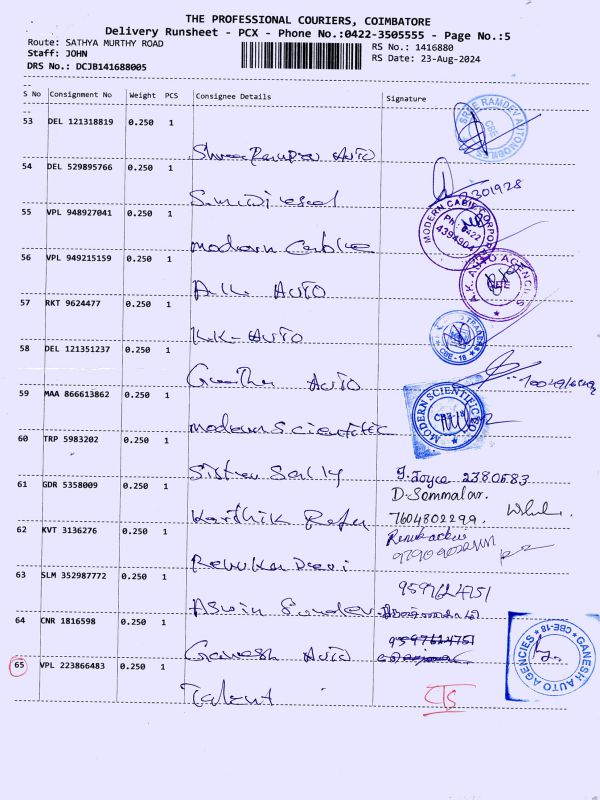 THE PROFESSIONAL COURIERS, COIMBATORE
Delivery Runsheet - PCX - Phone No.:0422-3505555 - Page No.:5
Route: SATHYA MURTHY ROAD
RS No.: 1416880
Staff: JOHN
RS Date: 23-Aug-2024
DRS No.: DCJB141688005
S No Consignment No Weight PCS Consignee Details Signature
53 DEL 121318819 0.250 1
SREE RAMDEV AUTOMOBILES CBE
Auto
54 DEL 529895766 0.250 1
55 VPL 948927041 0.250 1
MODERN CABLE CORPOR
Ph: 0422
Modern Cable
56 VPL 949215159 0.250 1
A.K. AUTO AGENCIES
A.K. Auto
57 RKT 9624477 0.250 1
TRADERS CBE-18
K.K. Auto
58 DEL 121351237 0.250 1
Geetha Auto
59 MAA 866613862 0.250 1
MODERN SCIENTIFIC CBE-18
Modern Scientific
60 TRP 5983202 0.250 1
Sister Sally
J. Joyce 2380583
61 GDR 5358009 0.250 1
7604802299.
Karthik
62 KVT 3136276 0.250 1
Renuka Devi
63 SLM 352987772 0.250 1
9597624751
Aswin Sundar
64 CNR 1816598 0.250 1
GANESH AUTO AGENCIES CBE-18
9597624751
Ganesh Auto
65 VPL 223866483 0.250 1
Talent
CTS